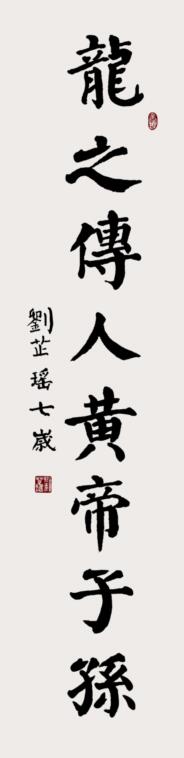 龍之傳人黄帝子孫
劉芷瑤七歲